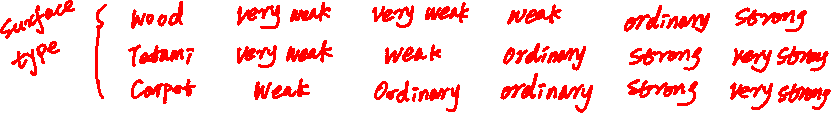 Surface type
Wood very weak very weak weak ordinary Strong
Tatami very weak weak Ordinary Strong very strong
Carpet Weak Ordinary ordinary Strong very strong